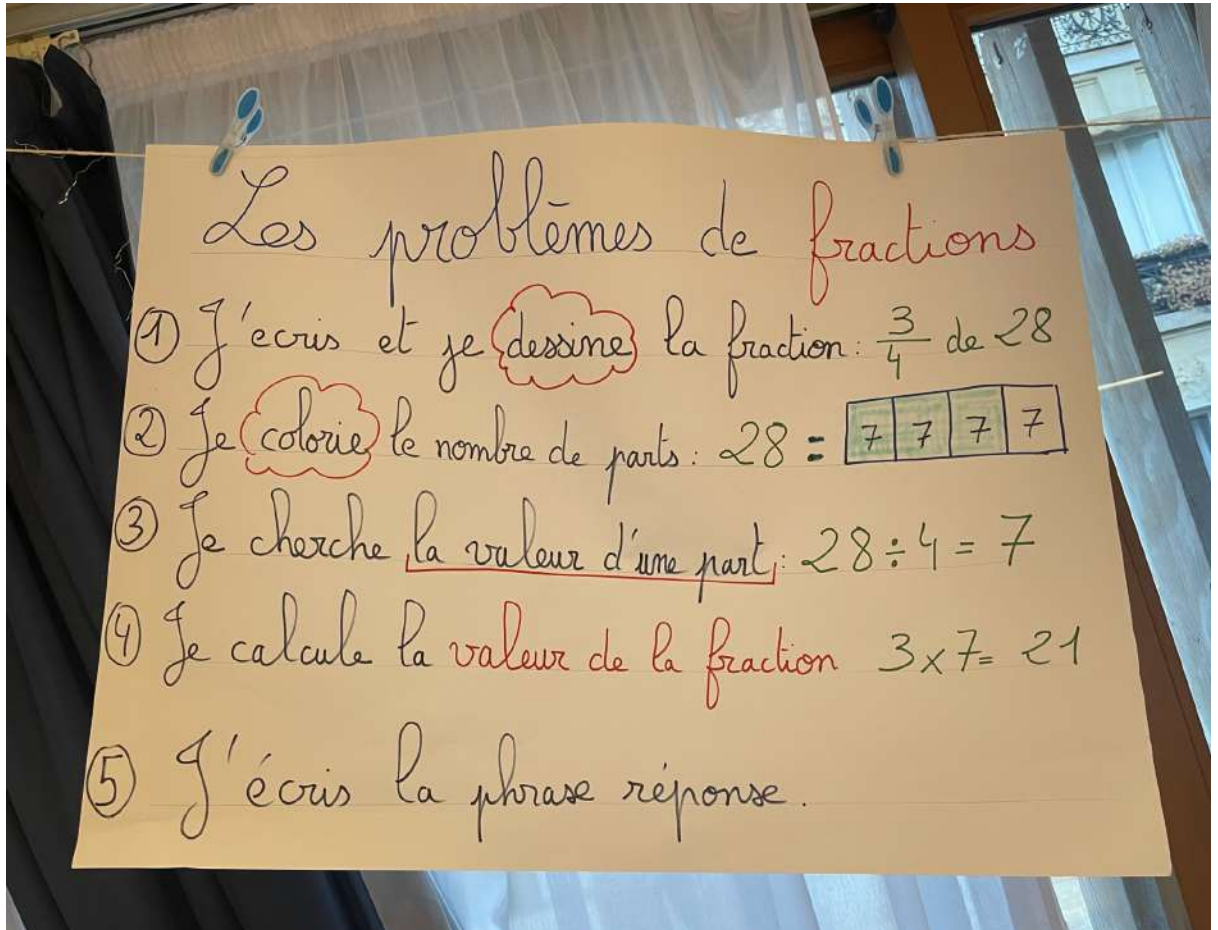 Les problèmes de fractions
① J'écris et je dessine la fraction: 3/4 de 28
② Je colorie le nombre de parts: 28 = 7 7 7 7
③ Je cherche la valeur d'une part: 28 ÷ 4 = 7
④ Je calcule la valeur de la fraction 3 x 7 = 21
⑤ J'écris la phrase réponse.